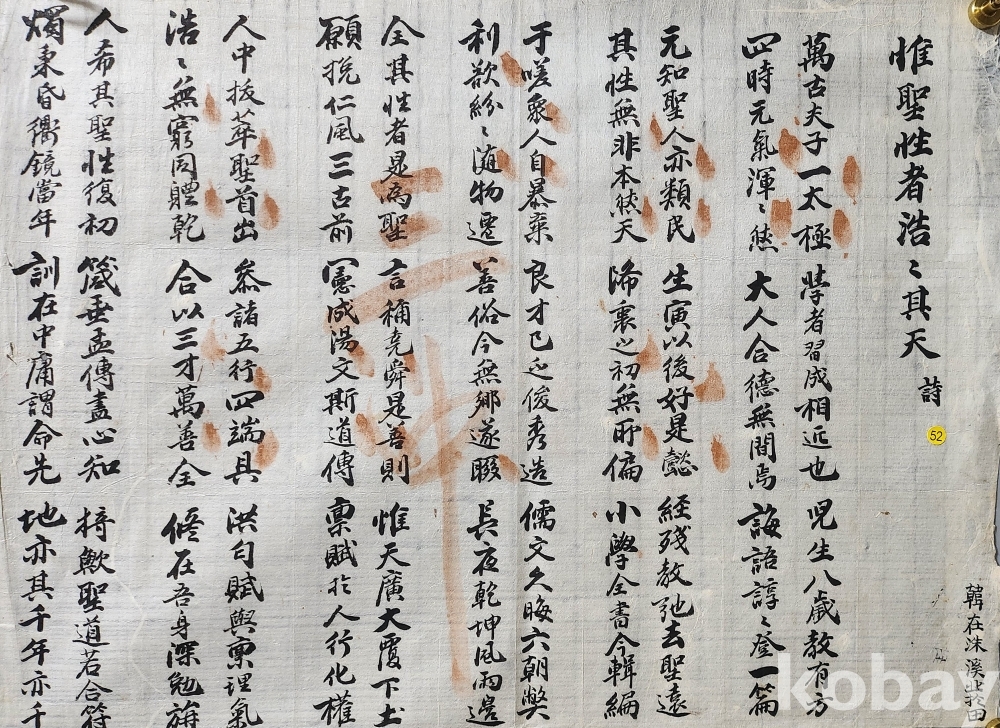 惟聖性者浩〻其天 詩
52
萬古夫子一太極 學者習成相近也 児生八歲教有方
四時元氣渾〻然 大人合德無間焉 誨語諄〻登一篇
元知聖人亦類民 生寅以後好是懿 經殘教弛去聖遠
其性無非本然天 降衷之初無所偏 小學全書今輯編
于嗟衆人自暴棄 良才已乏俊秀造 儒文久晦六朝弊
利欲紛〻隨物遷 善俗今無鄉遂畷 長夜乾坤風雨邊
全其性者是爲聖 言稱堯舜是善則 惟天廣大覆下土
願挽仁風三古前 憲成湯文斯道傳 稟賦於人行化權
人中拔萃聖首出 參諸五行四端具 洪匀賦與稟理氣
浩〻無窮同體乾 合以三才萬善全 修在吾身深勉旃
人希其聖性復初 箴垂孟傳盡心知 歟聖道若合符
燭東昏衢鏡當年 訓在中庸謂命先 地亦其千年亦千
韓在洙溪
kobay